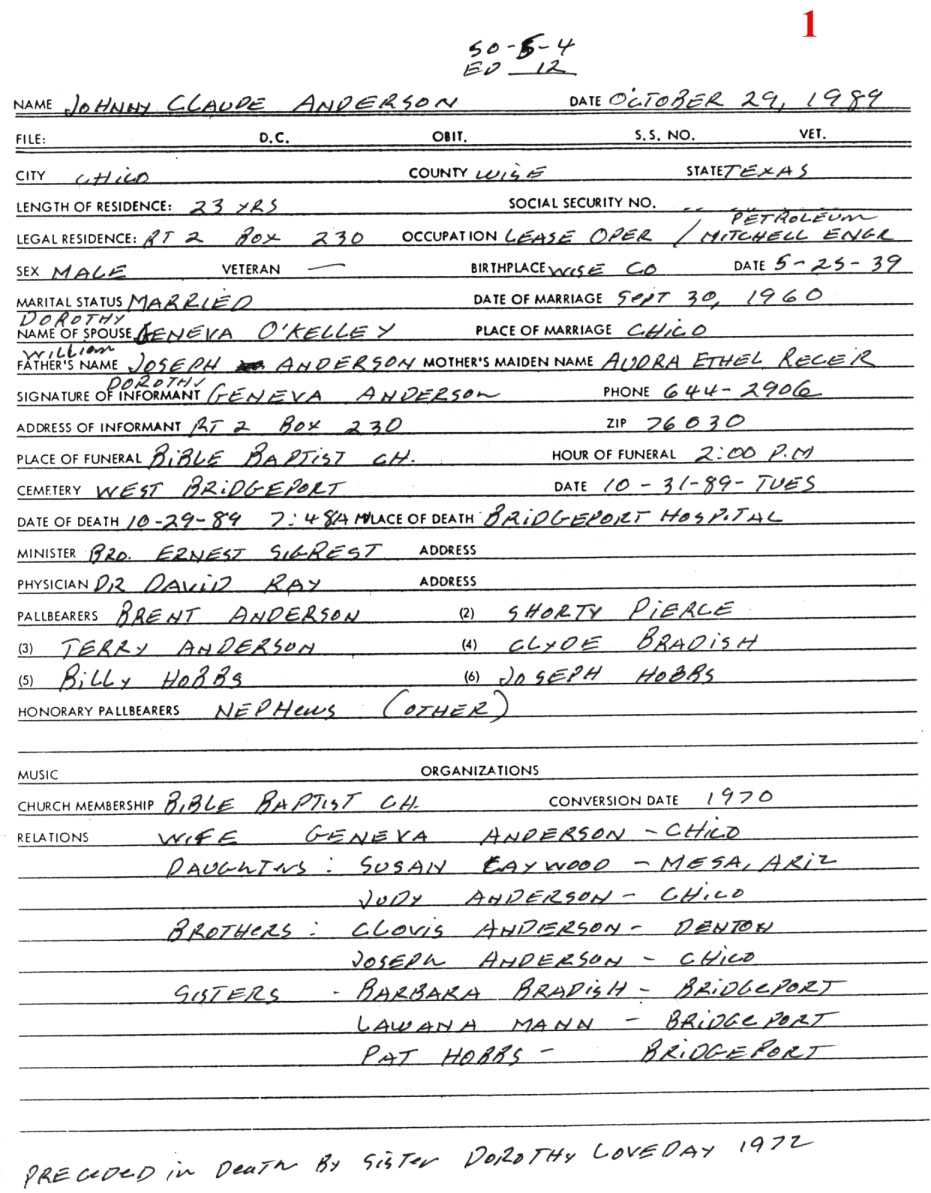 1
50-5-4
ED 12
NAME JOHNNY CLAUDE ANDERSON DATE OCTOBER 29, 1989
FILE: D.C. OBIT. S.S. NO. VET.
CITY CHICO COUNTY WISE STATE TEXAS
LENGTH OF RESIDENCE: 23 YRS SOCIAL SECURITY NO.
PETROLEUM
LEGAL RESIDENCE: RT 2 BOX 230 OCCUPATION LEASE OPER / MITCHELL ENGR
SEX MALE VETERAN — BIRTHPLACE WISE CO DATE 5-25-39
MARITAL STATUS MARRIED DATE OF MARRIAGE SEPT 30, 1960
DOROTHY
NAME OF SPOUSE GENEVA O'KELLEY PLACE OF MARRIAGE CHICO
WILLIAM
FATHER'S NAME JOSEPH ANDERSON MOTHER'S MAIDEN NAME AUDRA ETHEL RECER
DOROTHY
SIGNATURE OF INFORMANT GENEVA ANDERSON PHONE 644-2906
ADDRESS OF INFORMANT RT 2 BOX 230 ZIP 76030
PLACE OF FUNERAL BIBLE BAPTIST CH. HOUR OF FUNERAL 2:00 P.M
CEMETERY WEST BRIDGEPORT DATE 10-31-89-TUES
DATE OF DEATH 10-29-89 7:48AM PLACE OF DEATH BRIDGEPORT HOSPITAL
MINISTER BRO. ERNEST SIGREST ADDRESS
PHYSICIAN DR DAVID RAY ADDRESS
PALLBEARERS BRENT ANDERSON (2) SHORTY PIERCE
(3) TERRY ANDERSON (4) CLYDE BRADISH
(5) BILLY HOBBS (6) JOSEPH HOBBS
HONORARY PALLBEARERS NEPHEWS (OTHER)
MUSIC ORGANIZATIONS
CHURCH MEMBERSHIP BIBLE BAPTIST CH. CONVERSION DATE 1970
RELATIONS WIFE GENEVA ANDERSON - CHICO
DAUGHTERS : SUSAN CAYWOOD - MESA, ARIZ
JUDY ANDERSON - CHICO
BROTHERS : CLOVIS ANDERSON - DENTON
JOSEPH ANDERSON - CHICO
SISTERS - BARBARA BRADISH - BRIDGEPORT
LAWANA MANN - BRIDGEPORT
PAT HOBBS - BRIDGEPORT
PRECEDED in DEATH BY SISTER DOROTHY LOVEDAY 1972